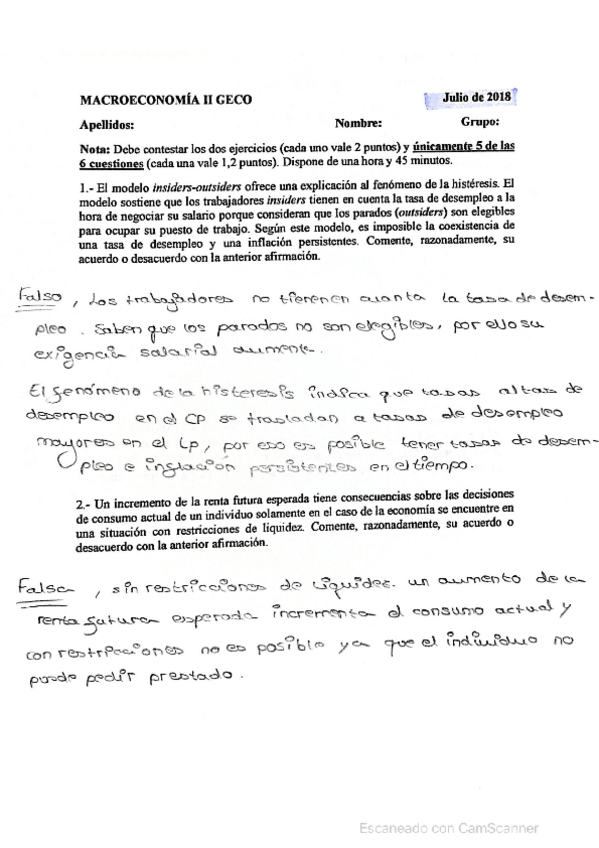 MACROECONOMÍA II GECO Julio de 2018
Apellidos: Nombre: Grupo:
Nota: Debe contestar los dos ejercicios (cada uno vale 2 puntos) y únicamente 5 de las
6 cuestiones (cada una vale 1,2 puntos). Dispone de una hora y 45 minutos.
1.- El modelo insiders-outsiders ofrece una explicación al fenómeno de la histéresis. El
modelo sostiene que los trabajadores insiders tienen en cuenta la tasa de desempleo a la
hora de negociar su salario porque consideran que los parados (outsiders) son elegibles
para ocupar su puesto de trabajo. Según este modelo, es imposible la coexistencia de
una tasa de desempleo y una inflación persistentes. Comente, razonadamente, su
acuerdo o desacuerdo con la anterior afirmación.
Falso, Los trabajadores no tienen en cuanta la tasa de desem-
pleo. Saben que los parados no son elegibles, por ello su
exigencia salarial aumenta.
El fenómeno de la histeresis indica que tasas altas de
desempleo en el CP se trasladan a tasas de desempleo
mayores en el Lp, por eso es posible tener tasas de desem-
pleo e inflación persistentes en el tiempo.
2.- Un incremento de la renta futura esperada tiene consecuencias sobre las decisiones
de consumo actual de un individuo solamente en el caso de la economía se encuentre en
una situación con restricciones de liquidez. Comente, razonadamente, su acuerdo o
desacuerdo con la anterior afirmación.
Falsa, sin restricciones de liquidez. un aumento de la
renta futura esperada incrementa el consumo actual y
con restricciones no es posible ya que el individuo no
puede pedir prestado.
Escaneado con CamScanner